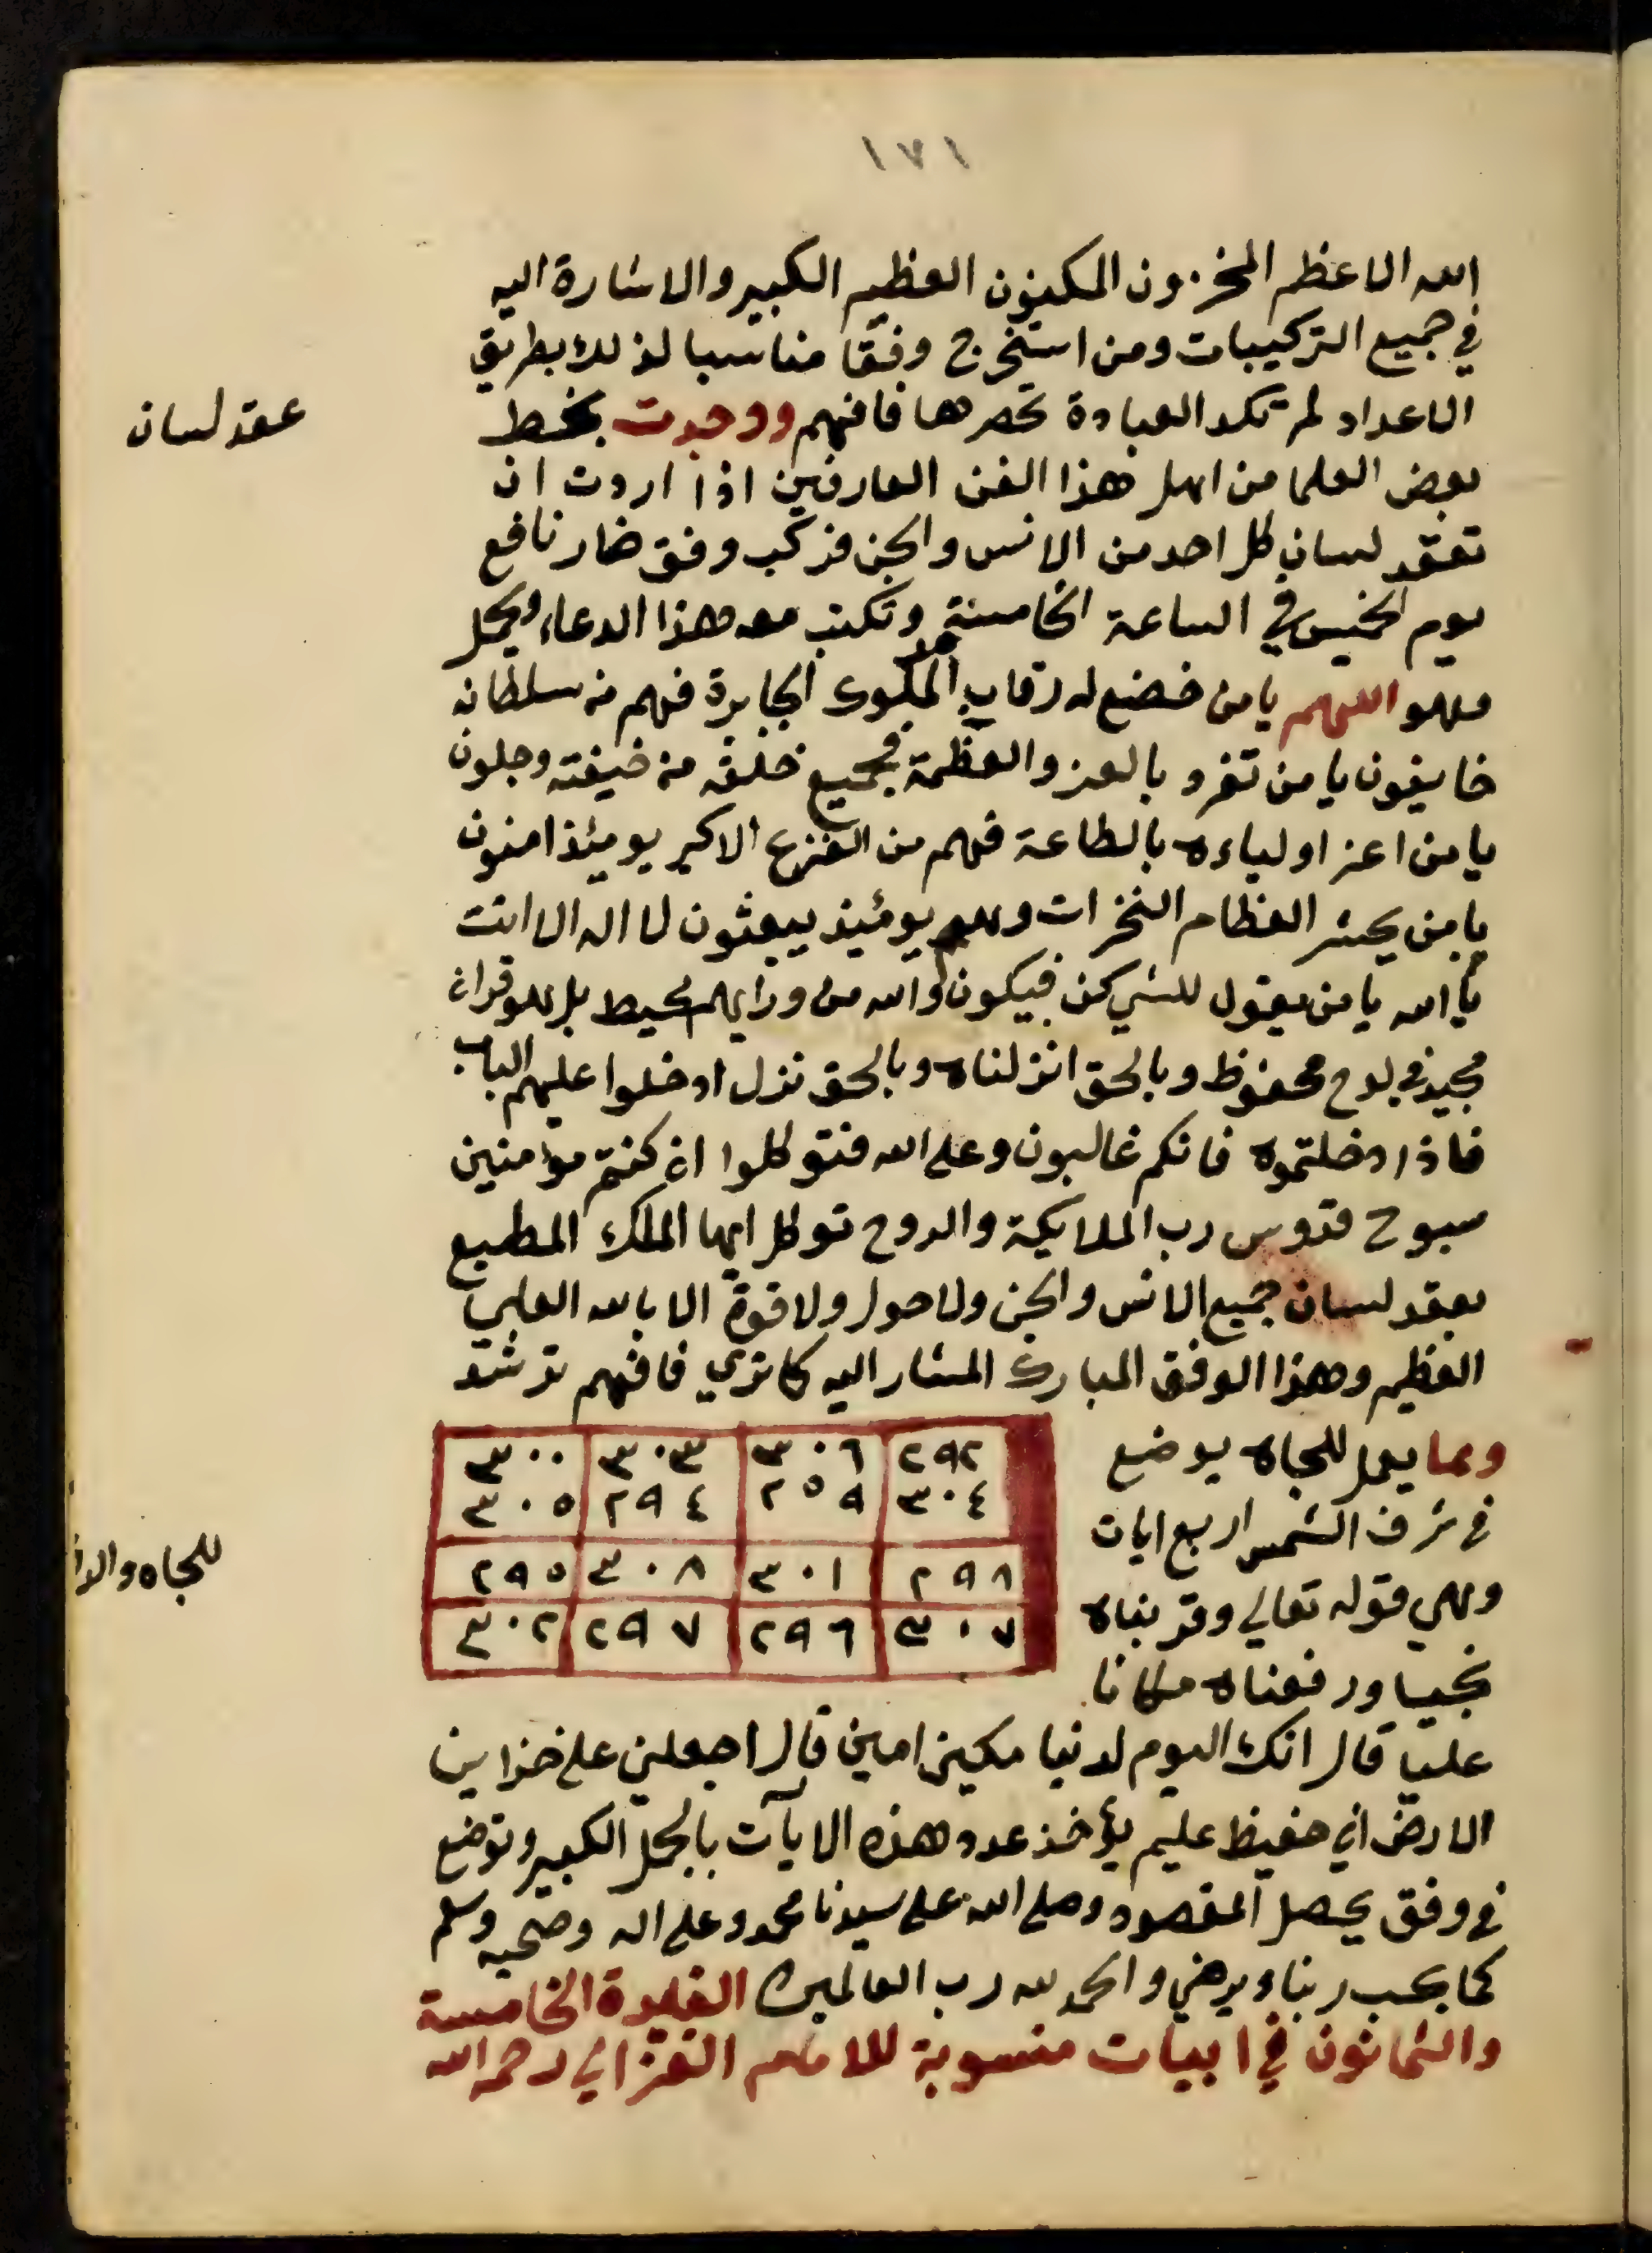 ١٧١
الله الاعظم المخزون المكنون العظيم الكبير والاشارة اليه
في جميع التركيبات ومن استخرج وفقا مناسبا لذلك بطريق
الاعداد لم تكد العبادة تحصرها فافهم ووجدت بخط
عقد لسان
بعض العلما من اهل هذا الفن العارفين اذا اردت ان
تعقد لسان كل احد من الانس والجن فركب وفق ضار نافع
يوم الخميس في الساعة الخامسة وتكتب معه هذا الدعاء ويحمل
وهو اللهم يا من خضع له رقاب الملوك الجابرة فهم من سلطانه
خايفون يا من تفرد بالعز والعظمة فجميع خلقه من خيفته وجلون
يا من اعز اولياءه بالطاعة فهم من الفزع الاكبر يومئذ امنون
يا من يحشر العظام النخرات وهم يومئيذ يبعثون لا اله الا انت
يا الله يا من يقول للشي كن فيكون والله من ورايهم محيط بل هو قران
مجيد في لوح محفوظ وبالحق انزلناه وبالحق نزل ادخلوا عليهم الباب
فاذا دخلتموه فانكم غالبون وعلى الله فتوكلوا ان كنتم مؤمنين
سبوح قدوس رب الملايكة والروح توكل ايها الملك المطيع
بعقد لسان جميع الانس والجن ولا حول ولا قوة الا بالله العلي
العظيم وهذا الوفق المبارك المشار اليه كما تري فافهم ترشد
ومما يعمل للجاه يوضع
في شرف الشمس اربع ايات
وهي قوله تعالي وقربناه
نجيا ورفعناه مكانا
٢٩٢ ٣٠٦ ٣٠٣ ٣٠٠
٣٠٤ ٢٥٩ ٢٩٤ ٣٠٥
٢٩٨ ٣٠١ ٣٠٨ ٢٩٥
٣٠٧ ٢٩٦ ٢٩٧ ٣٠٢
للجاه
عليا قال انك اليوم لدنيا مكين امين قال اجعلني على خزاين
الارض اني حفيظ عليم يؤخذ عدد هذه الايآت بالجمل الكبير وتوضع
في وفق يحصل المقصود وصلى الله على سيدنا محمد وعلى اله وصحبه وسلم
كما يحب ربنا ويرضي والحمد لله رب العالمين الفايدة الخامسة
والثمانون في ابيات منسوبة للامام الغزالي رحمه الله